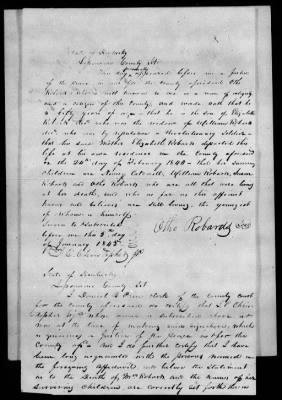 State of Kentucky
Lessamine County Sct
This day personally appeared before me a Justice
of the peace in and for the County aforesaid Otho
Robards who is well known to me as a man of integrity
and a citizen of this County, and made oath that he
is fifty years of age that he is the son of Elizabeth
Robards who was the widow of William Robards
decd. who was by reputation a Revolutionary Soldier
that his said Mother Elizabeth Robards departed this
life at her own residence in the County aforesaid
on the 24th day of February 1840 that her surviving
children are Nancy Caldwell, William Robards,
Robards and Otho Robards who are all that were living
at her death, and who as far as this affiant
knows and believes are still living, the youngest
of whom is himself
Sworn to & subscribed
before me this 3d day
of January 1845
Otho Robards
Chrisropher JP
State of Kentucky
Lessamine County Sct
I Daniel B Price clerk of the County court
for the County aforesaid do certify that
whose name is subscribed above is
now at the time of making said signature, which
is genuine a justice of the peace in & for this
County And I do further certify that I have
been long acquainted with the persons named in
the foregoing affidavit and believe the statement
as to the Death of Mrs Robards and the names of her
surviving children are correctly set forth therein